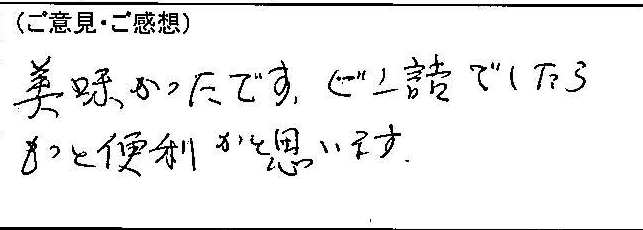 （ご意見・ご感想）
美味かったです。ビン詰でしたら
もっと便利かと思います。